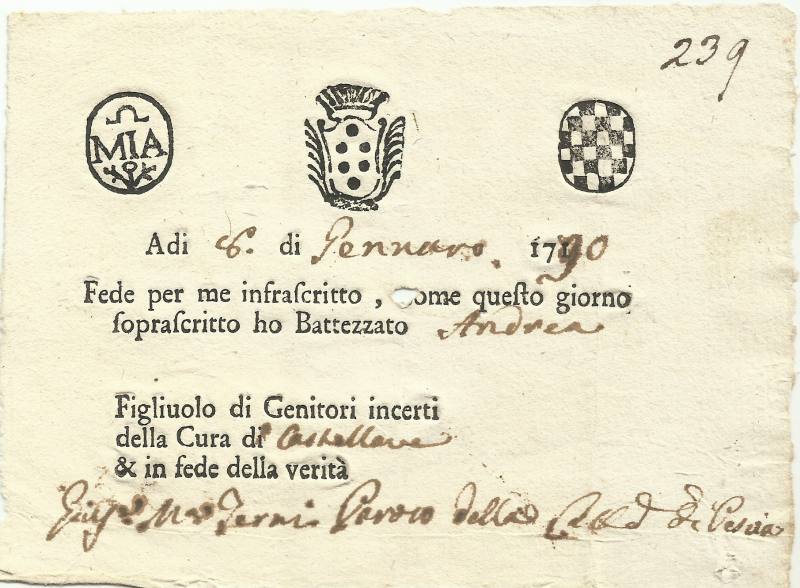 239
MIA
Adi 6. di Gennaro. 1790
Fede per me infraſcritto , come queſto giorno
ſopraſcritto ho Battezzato Andrea
Figliuolo di Genitori incerti
della Cura di Castellare
& in fede della verità
Giuse Ma Paroco della di Pescia